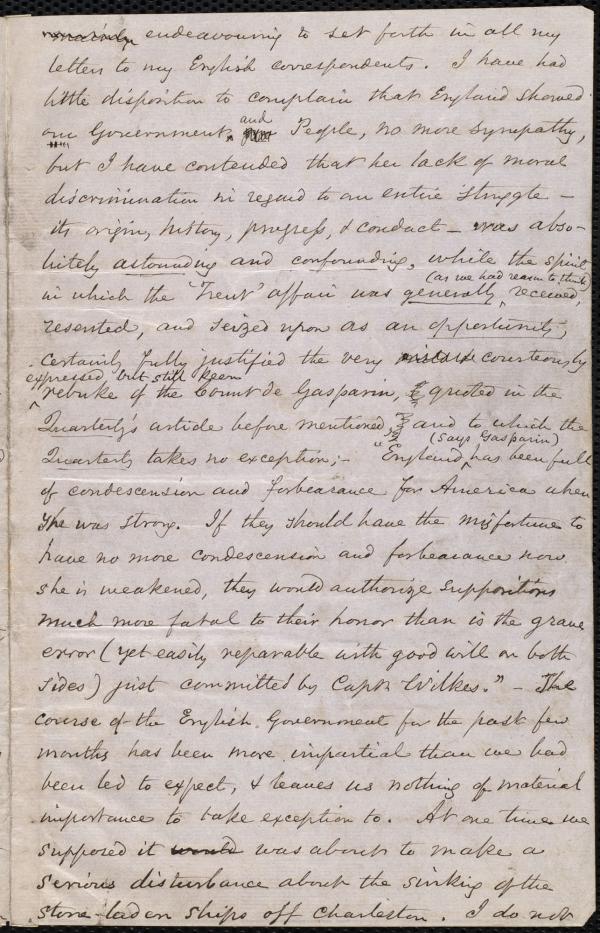 endeavouring to set forth in all my
letters to my English correspondents. I have had
little disposition to complain that England showed
our Government and People, no more sympathy,
but I have contended that her lack of moral
discrimination in regard to our entire struggle —
its origin, history, progress, & conduct — was abso-
lutely astounding and confounding, while the spirit
(as we had reason to think)
in which the 'Trent' affair was generally received,
resented, and seized upon as an opportunity,
certainly fully justified the very courteously
expressed but still keen
rebuke of the Count de Gasparin, quoted in the
Quarterly's article before mentioned, and to which the
(says Gasparin)
Quarterly takes no exception;- "England has been full
of condescension and forbearance for America when
she was strong. If they should have the misfortune to
have no more condescension and forbearance now
she is weakened, they would authorize suppositions
much more fatal to their honor than is the grave
error (yet easily reparable with good will on both
sides) just committed by Capt. Wilkes." — The
course of the English Government for the past few
months has been more impartial than we had
been led to expect, & leaves us nothing of material
importance to take exception to. At one time we
supposed it would was about to make a
serious disturbance about the sinking of the
stone-laden ships off Charleston. I do not